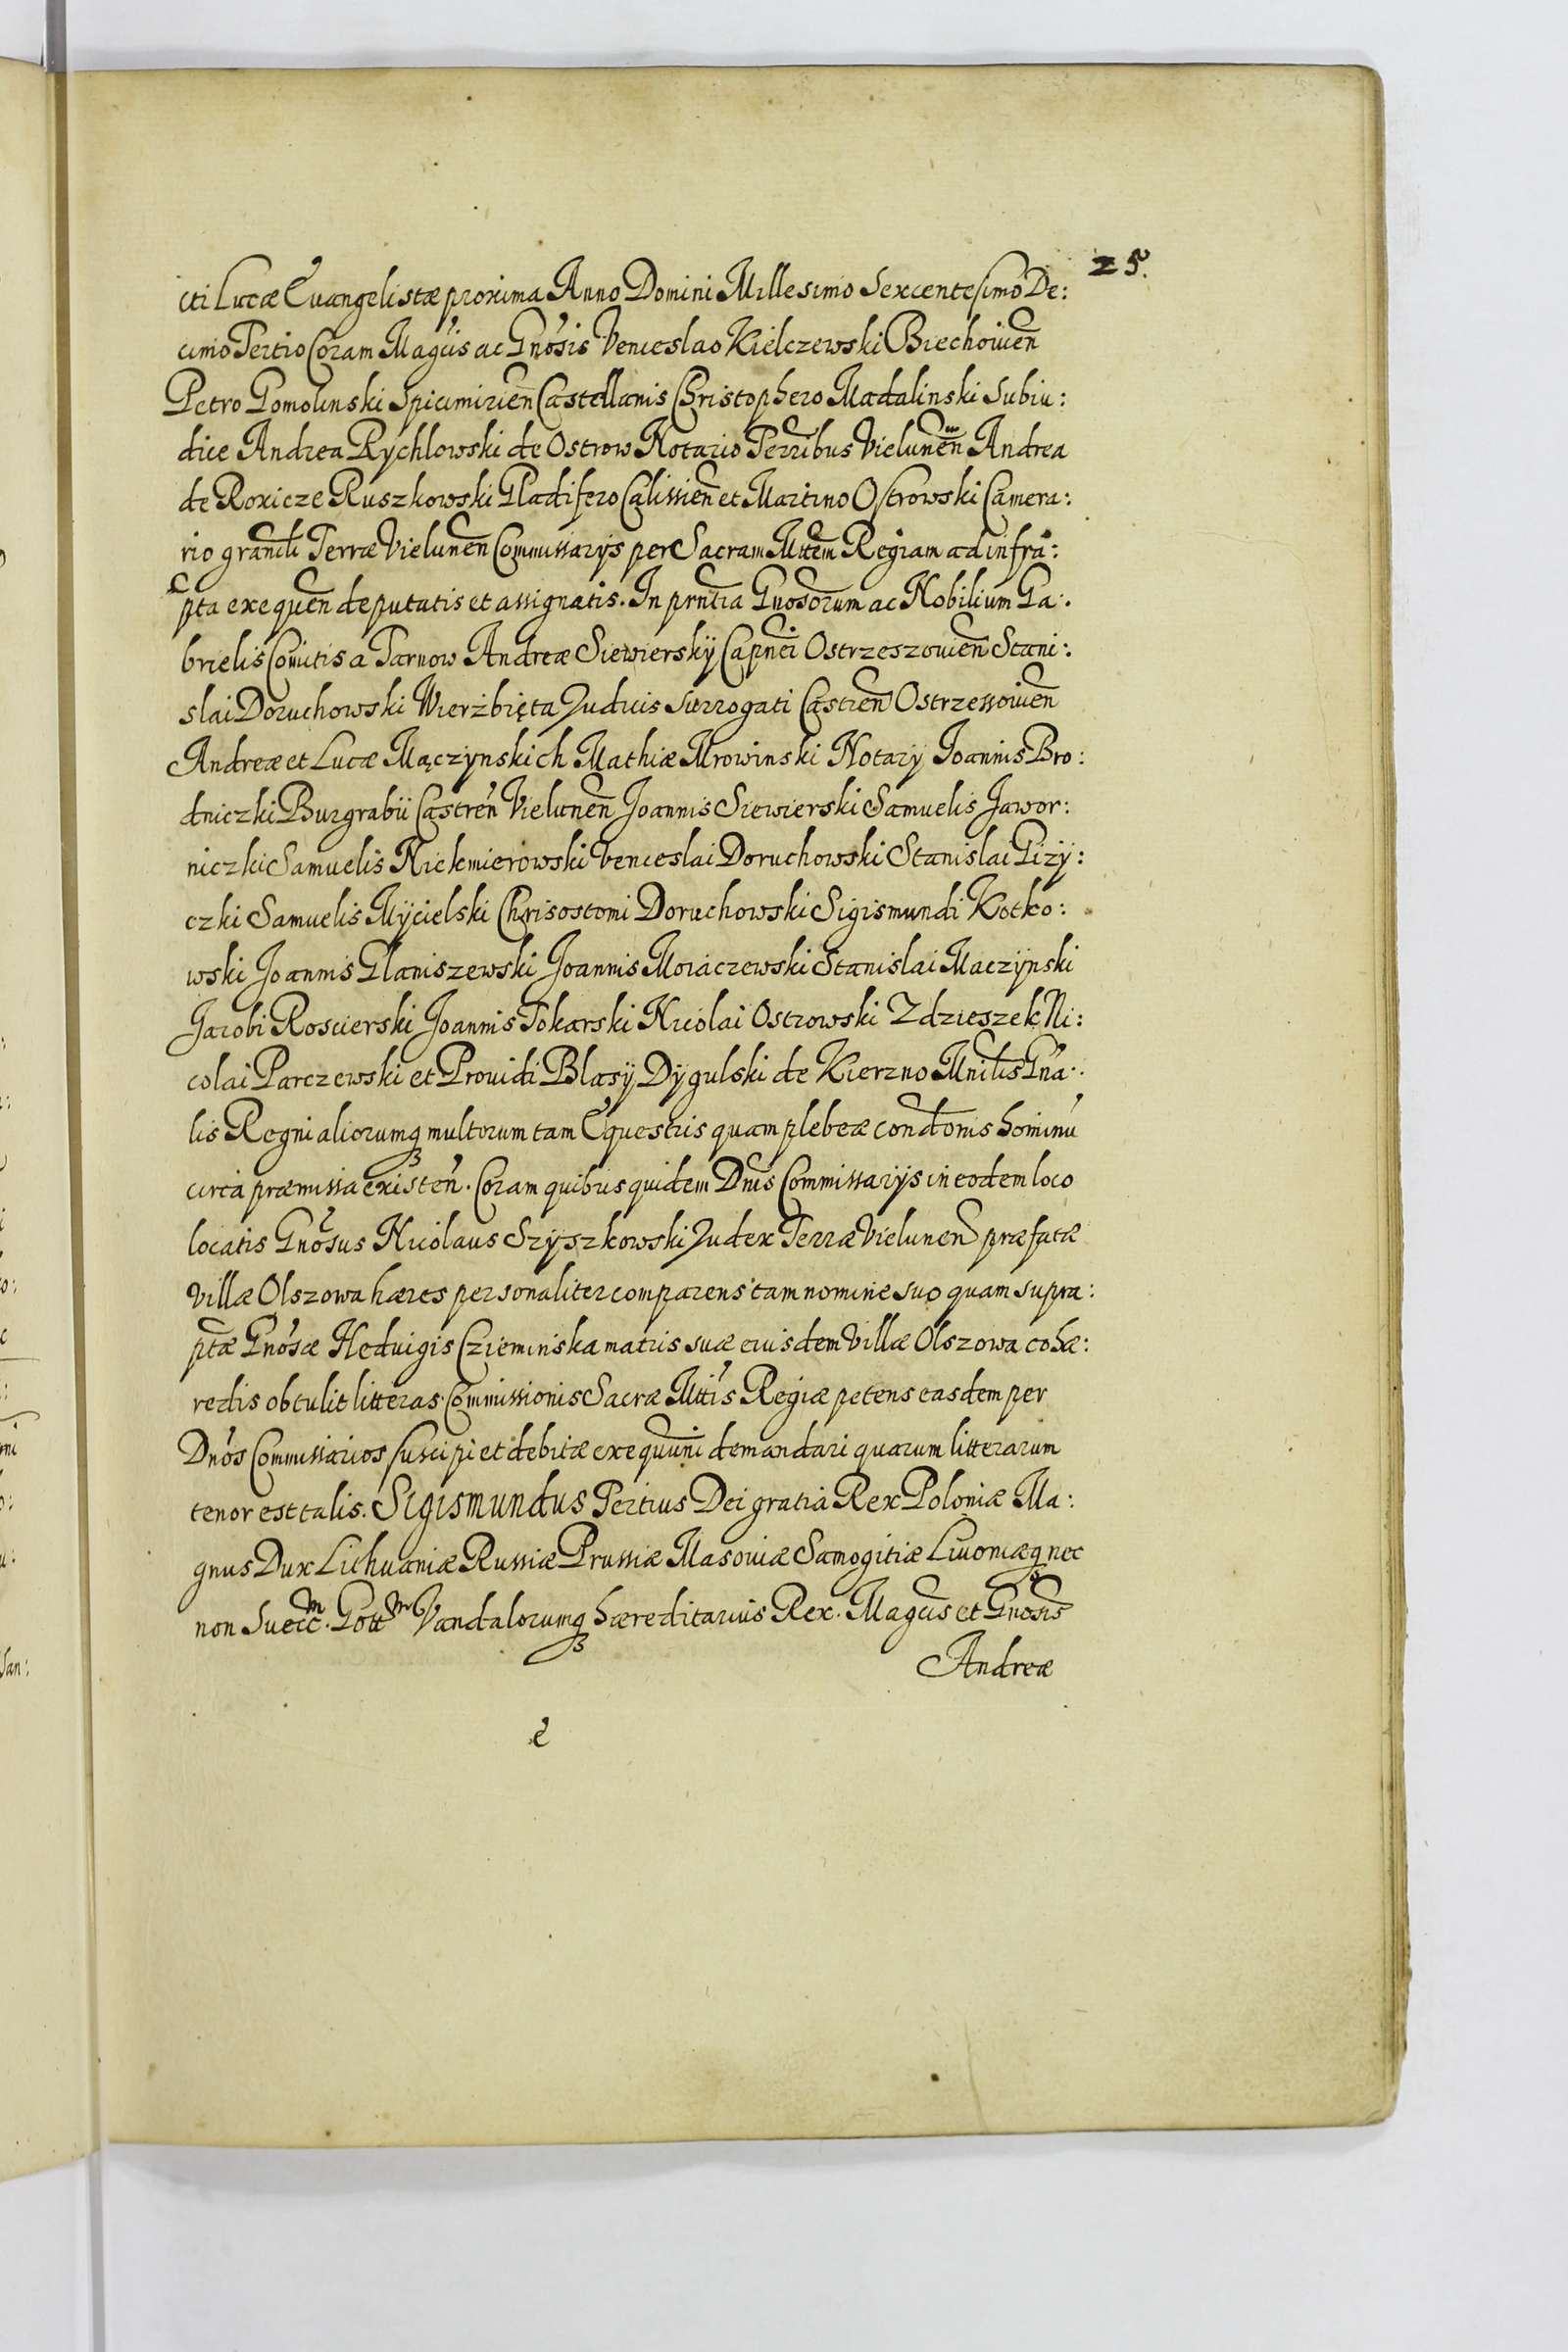 25.
cti Lucæ Euangelistæ proxima Anno Domini Millesimo Sexcentesimo De:
cimo Tertio Coram Magcis ac Gnosis Venceslao Kielczewski Biechouien
Petro Pomolinski Spicimirien Castellanis Christophero Madalinski Subiu:
dice Andrea Rychlowski de Ostrow Notario Terribus Vielunen Andrea
de Roxicze Ruszkowski Gladifero Calissien et Martino Ostrowski Camera:
rio granili Terræ Vielunen Commissarys per Sacram Mttem Regiam ad infra:
pta exequen deputatis et assignatis. In prntia Gnosorum ac Nobilium Ga:
brielis Comitis a Tarnow Andreæ Siewierskÿ Capnei Ostrzeszouien Stani:
slai Doruchowski Wierzbięta Judicis surrogati Castren Ostrzessouien
Andreæ et Lucæ Mączynskich Mathiæ Mrowinski Notarÿ Joannis Bro:
dniczki Burgrabii Castren Vielunen Joannis Siewierski Samuelis Jawor:
niczki Samuelis Niekmierowski Venceslai Doruchowski Stanislai Gizÿ:
czki Samuelis Mÿcielski Chrisostomi Doruchowski Sigismundi Kotko:
wski Joannis Glaniszewski Joannis Moraczewski Stanislai Maczÿnski
Jacobi Roscierski Joannis Tokarski Nicolai Ostrowski Zdzieszek Ni:
colai Parczewski et Prouidi Blasÿ Dÿgulski de Kierzno Mnilis Gna:
lis Regni aliorumq multorum tam Equestris quam plebeæ condtonis hominu
circa præmissa existen. Coram quibus quidem Dnis Commissarÿs in eodem loco
locatis Gnosus Nicolaus Szÿszkowski Judex Terræ Vielunen præfatæ
villæ Olszowa hæres personaliter comparens tam nomine suo quam supra:
ptæ Gnosæ Heduigis Czieminska matris suæ eiusdem Villæ Olszowa cohæ:
redis obtulit litteras Commissionis Sacræ Mttis Regiæ petens easdem per
Dnos Commissarios suscipi et debitæ exequuni demandari quarum litterarum
tenor est talis. Sigismundus Tertius Dei gratia Rex Poloniæ Ma:
gnus Dux Lithuaniæ Russiæ Prussiæ Masouiæ Samogitiæ Liuoniæq nec
non Suecc. Gott Vandalorumq hæreditarius Rex. Magcis et Gnosis
Andreæ
e